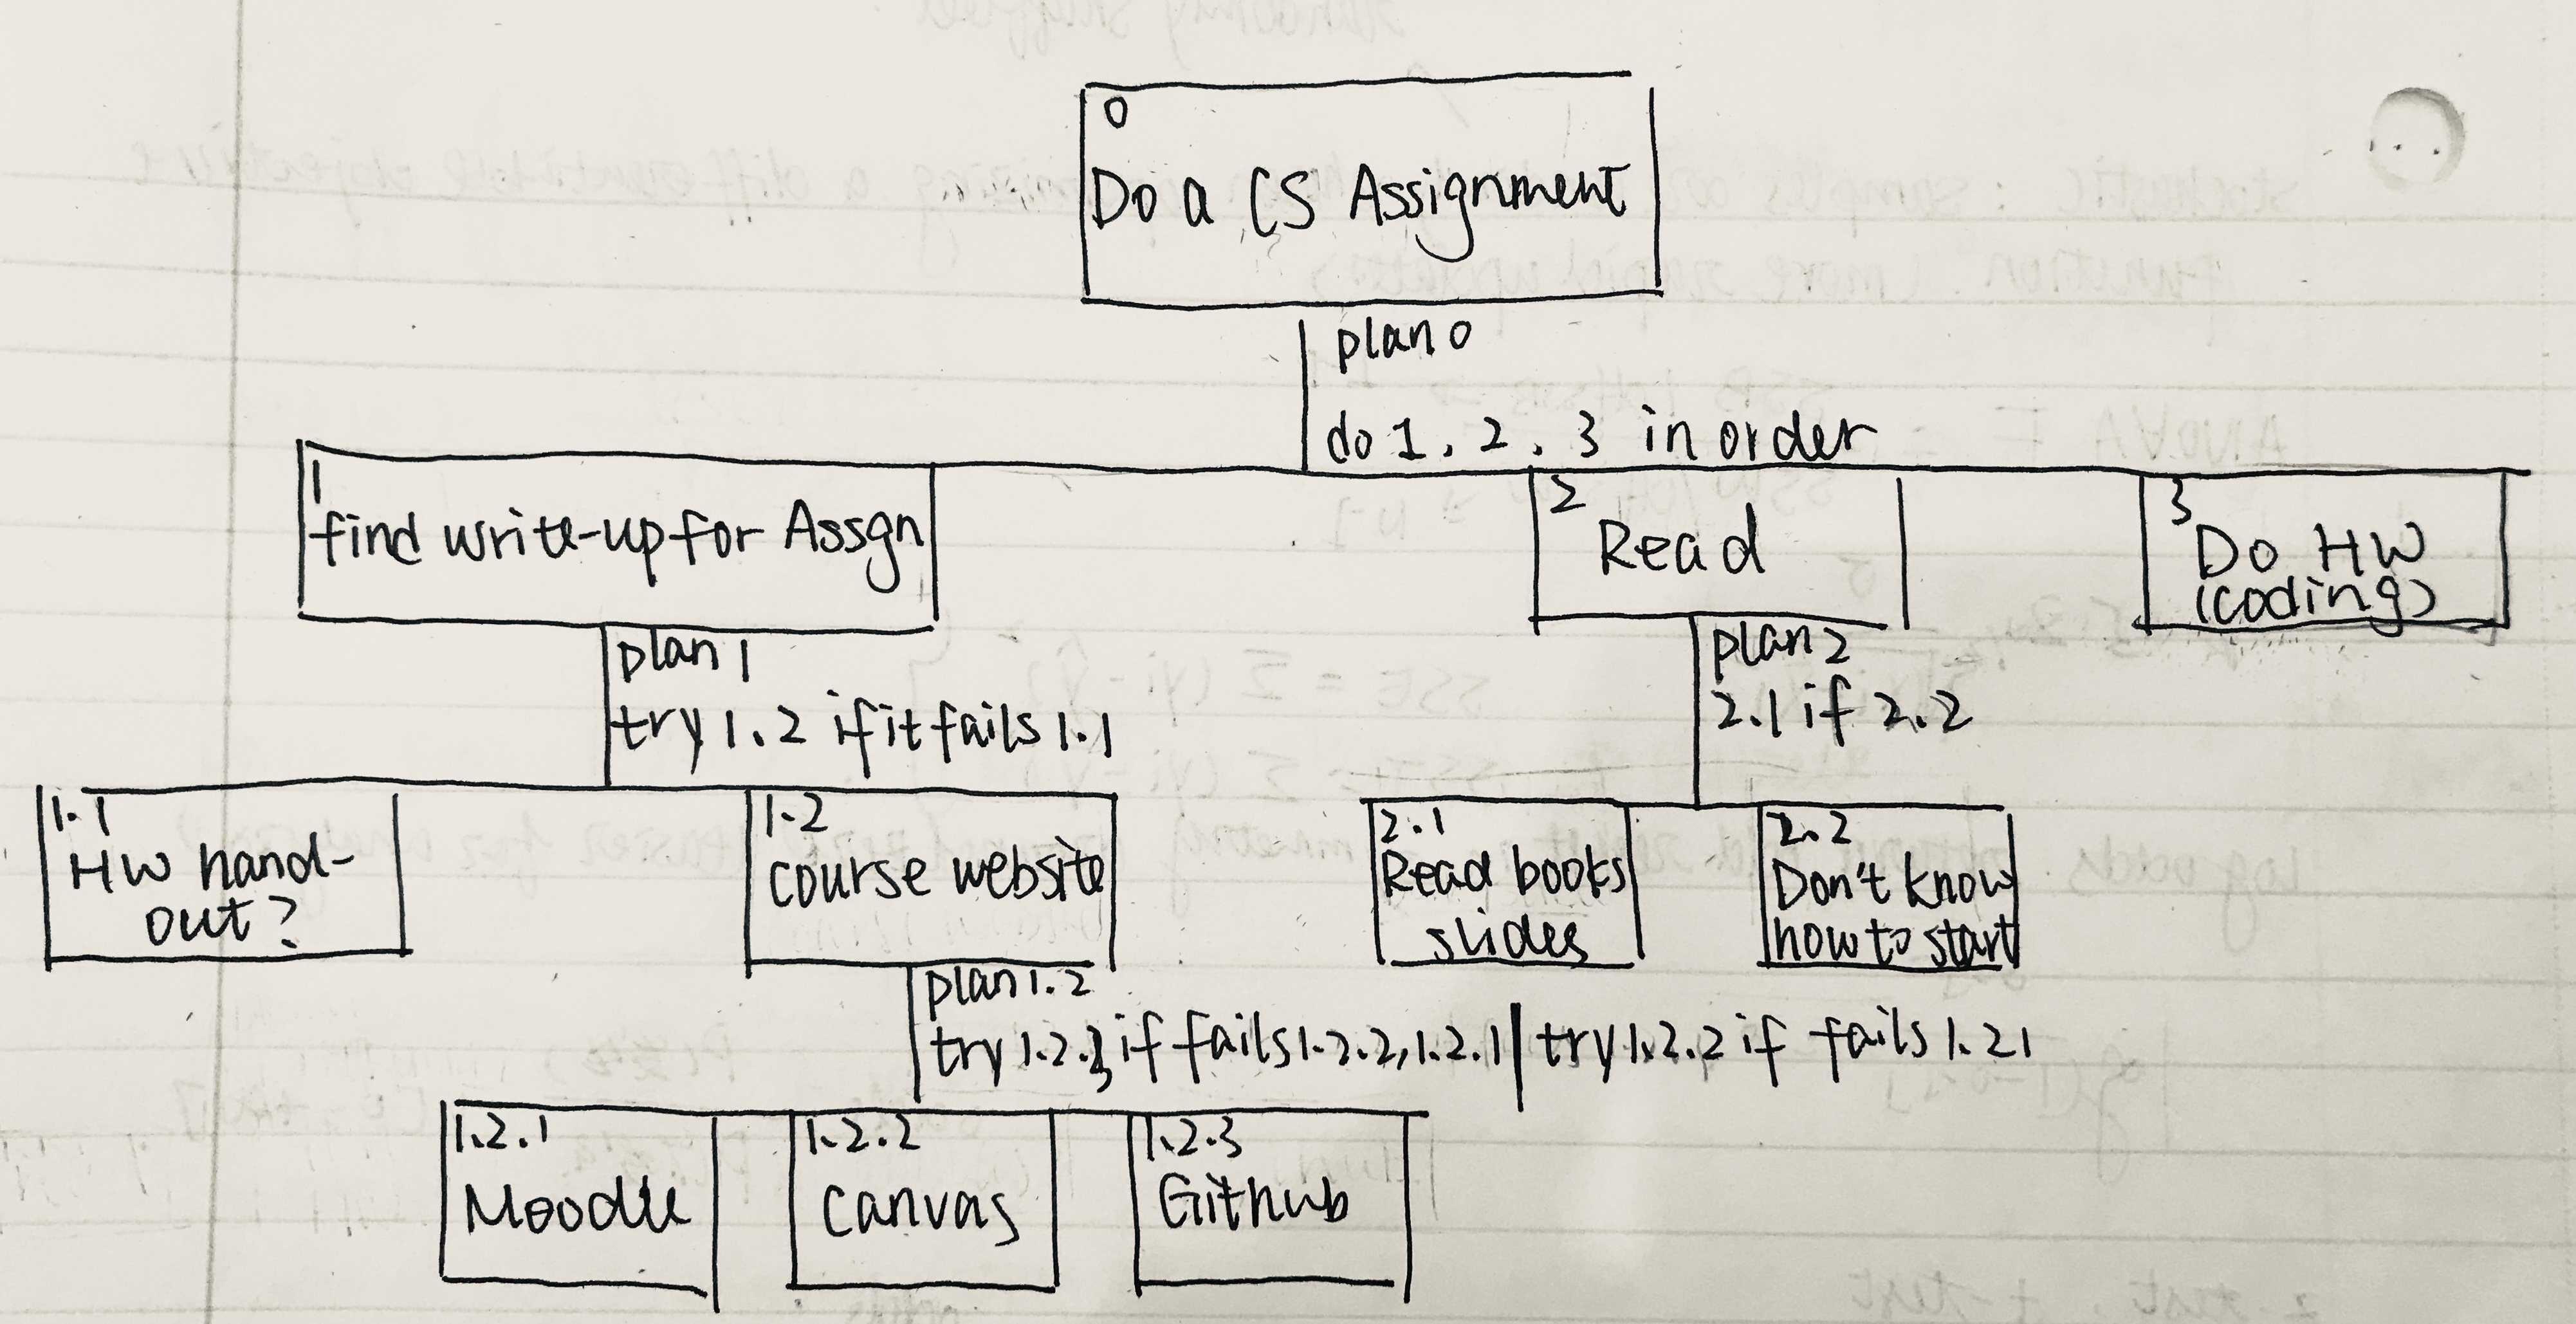 0
Do a CS Assignment
plan 0
do 1. 2. 3 in order
1
find write-up for Assgn
2
Read
3
Do HW
(coding)
plan 1
try 1.2 if it fails 1.1
plan 2
2.1 if 2.2
1.1
HW hand-
out?
1.2
course website
2.1
Read books
slides
2.2
Don't know
how to start
plan 1.2
try 1.2.3 if fails 1.2.2, 1.2.1 | try 1.2.2 if fails 1.21
1.2.1
Moodle
1.2.2
Canvas
1.2.3
Github